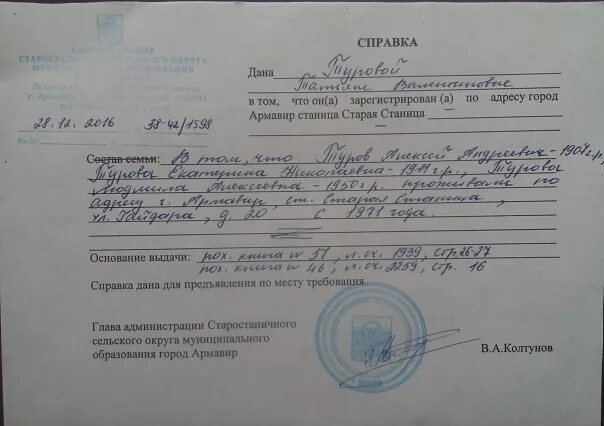 АДМИНИСТРАЦИЯ
СТАРОСТАНИЧНОГО СЕЛЬСКОГО ОКРУГА
МУНИЦИПАЛЬНОГО ОБРАЗОВАНИЯ
28.12.2016 38-42/1598
На №
СПРАВКА
Дана Туровой
Татьяне Валентиновне
в том, что он(а) зарегистрирован (а) по адресу город
Армавир станица Старая Станица –
Состав семьи: В том, что Туров Алексей Андреевич - 1907 г.р.,
Турова Екатерина Николаевна - 1911 г.р., Турова
Людмила Алексеевна - 1950 г.р. проживали по
адресу г. Армавир, ст. Старая Станица,
ул. Гайдара, д. 20 с 1971 года.
Основание выдачи: пох. книга № 51, л.сч. 1939, стр. 26-27
пох. книга № 46, л.сч. 2259, стр. 16
Справка дана для предъявления по месту требования.
Глава администрации Старостаничного
сельского округа муниципального
образования город Армавир В.А.Колтунов